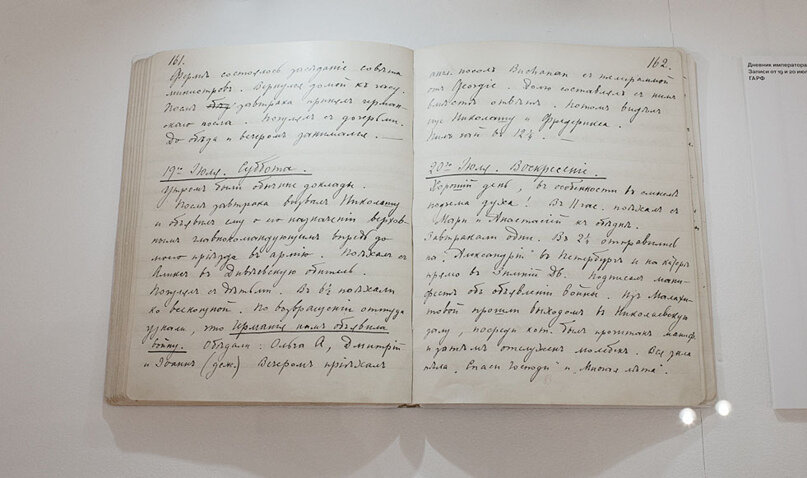 161.
Фермѣ состоялось засѣданіе совѣта
министровъ. Вернулся домой къ часу.
После завтрака принялъ герман-
скаго посла. Погулялъ съ дочерьми.
До обѣда и вечеромъ занимался.
19го Іюля. Суббота.
Утромъ были обычные доклады.
Послѣ завтрака вызвалъ Николашу
и объявилъ ему о его назначеніи верхов-
нымъ главнокомандующимъ впредь до
моего пріѣзда въ армію. Поѣхалъ съ
Аликсъ въ Дивѣевскую обитель.
Погулялъ съ дѣтьми. Въ 6½ поѣхали
ко всенощной. По возвращеніи оттуда
узнали, что Германія намъ объявила
войну. Обѣдали: Ольга А, Дмитрій
и Іоаннъ (деж.) Вечеромъ пріѣхалъ
162.
англ. посолъ Buchanan съ телеграммой
отъ Georgie. Долго составлялъ съ нимъ
вмѣстѣ отвѣтъ. Потомъ видѣлъ
еще Николашу и Фредерикса.
Пилъ чай въ 12¼.
20го Іюля. Воскресеніе.
Хорошій день, въ особенности въ смыслѣ
подъема духа! Въ 11 час. поѣхалъ съ
Мари и Анастасіей къ обѣднѣ.
Завтракали одни. Въ 2¼ отправились
на „Александріи" въ Петербургъ и на катерѣ
прямо въ Зимній Дв. Подписалъ мани-
фестъ объ объявленіи войны. Изъ Малахи-
товой прошли выходомъ въ Николаевскую
залу, посреди кот. былъ прочитанъ маниф.
и затѣмъ отслуженъ молебенъ. Вся зала
пѣла „Спаси Господи" и „Многая лѣта".
Дневник императора
Записи от 19 и 20 июл
ГАРФ